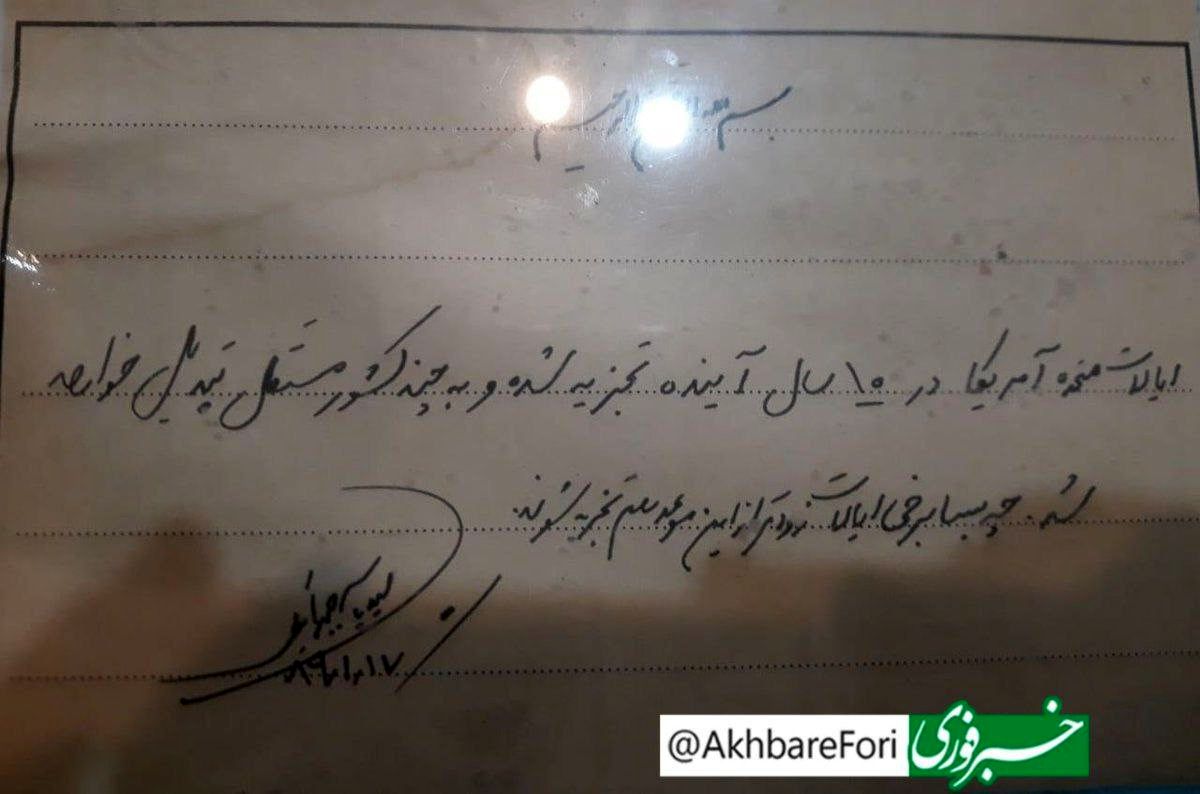 بسم الله الرحیم
ایالات متحده آمریکا در ۱۵ سال آینده تجزیه شده و به چند کشور مستقل تبدیل خواهد
شد. چه بسا برخی ایالات زودتر از این موعد هم تجزیه شوند.
سید یاسر جبرائیلی
۸۹/۱۰/۱۷
@AkhbareFori خبرفوری